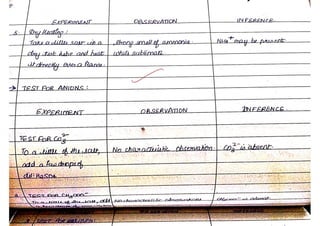 EXPERIMENT OBSERVATION INFERENCE
5. Dry Heating:
Take a little salt in a strong smell of ammonia NH4+ may be present
dry test tube and heat white sublimate
it directly over a flame.
→ TEST FOR ANIONS:
EXPERIMENT OBSERVATION INFERENCE
TEST FOR CO3²⁻
To a little of the salt, No characteristic observation CO3²⁻ is absent
add a few drops of
dil. H2SO4
TEST FOR CH3COO⁻
To a little of the salt, add No characteristic observation CH3COO⁻ is absent